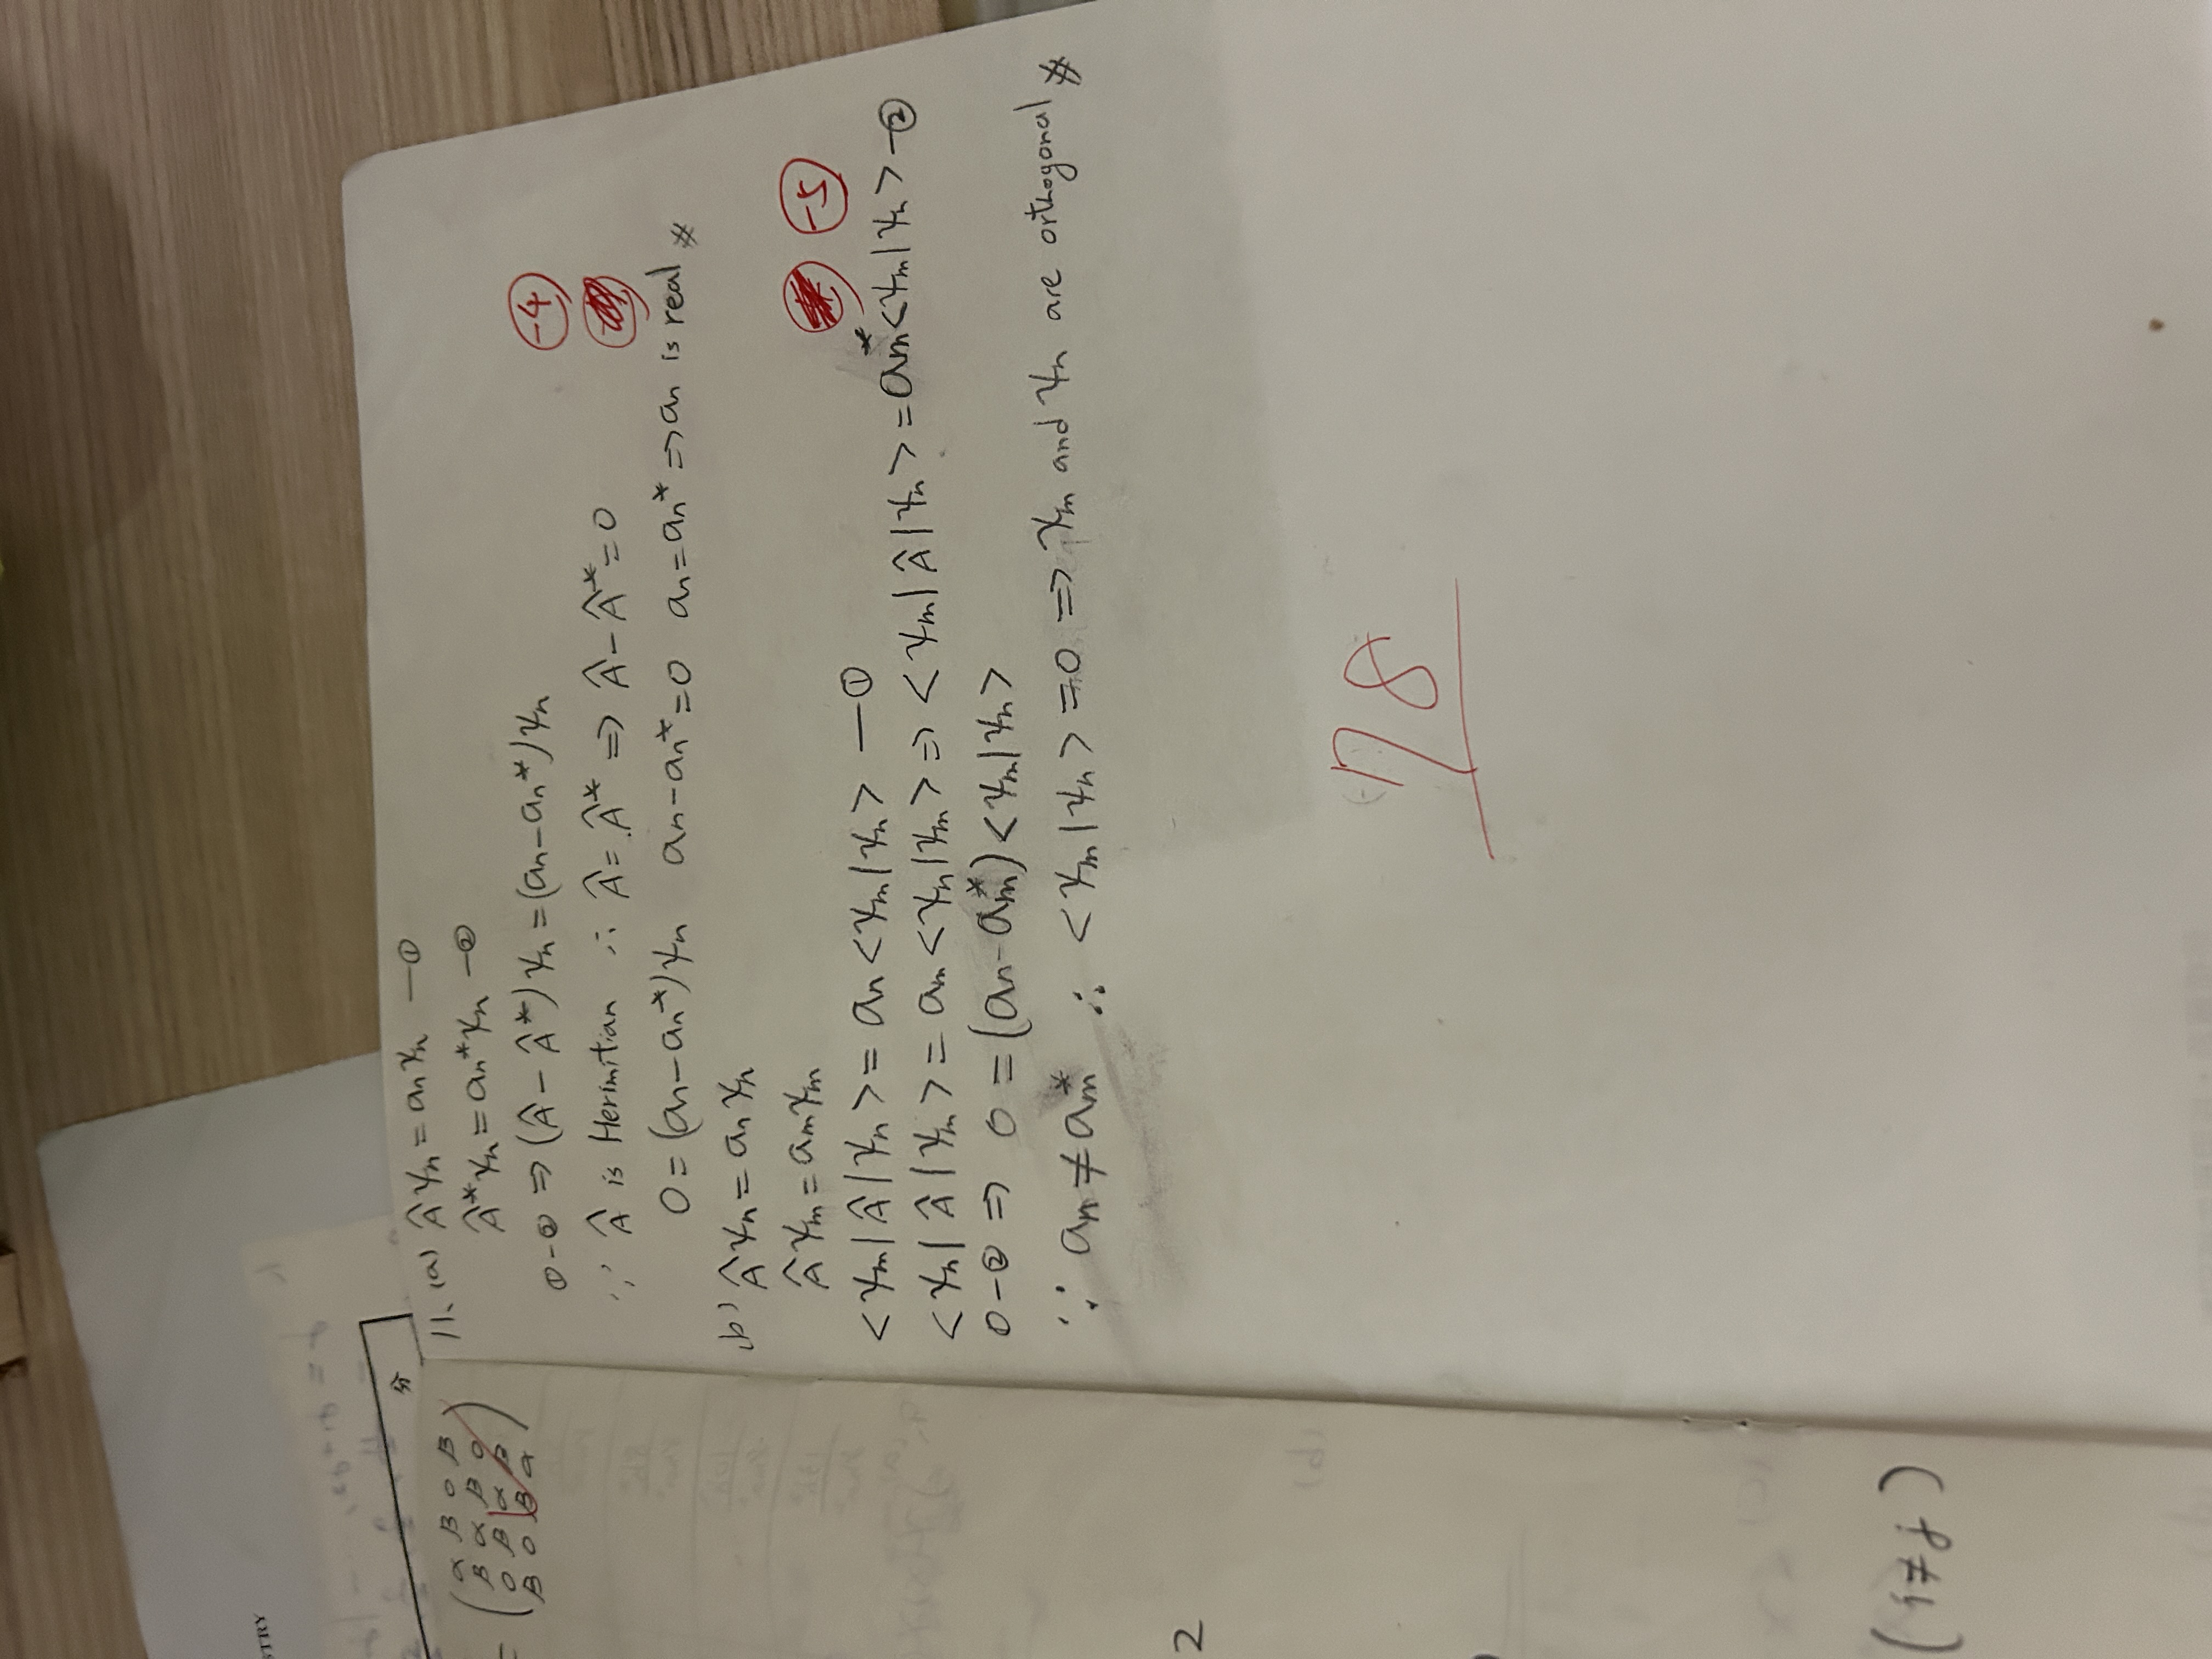 STRY
分
= (α β 0 β
β α β 0
0 β α β
β 0 β α)
2
(i≠j)
11、(a) Âψn = anψn —①
Â*ψn = an*ψn —②
①-② ⇒ (Â - Â*)ψn = (an - an*)ψn
-4
∵ Â is Herimitian ∴ Â = Â* ⇒ Â - Â* = 0
0 = (an - an*)ψn an - an* = 0 an = an* ⇒ an is real #
(b) Âψn = anψn
Âψm = amψm
-5
<ψm|Â|ψn> = an<ψm|ψn> —①
<ψn|Â|ψm> = am<ψn|ψm> ⇒ <ψm|Â|ψn> = am*<ψm|ψn> —②
①-② ⇒ 0 = (an - am*)<ψm|ψn>
∵ an ≠ am* ∴ <ψm|ψn> = 0 ⇒ ψm and ψn are orthogonal #
78